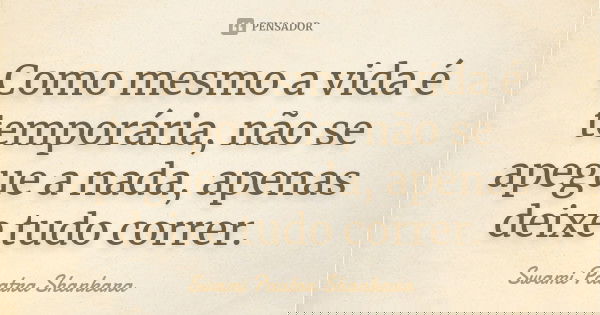 PENSADOR
Como mesmo a vida é
temporária, não se
apegue a nada, apenas
deixe tudo correr.
Swami Paatra Shankara